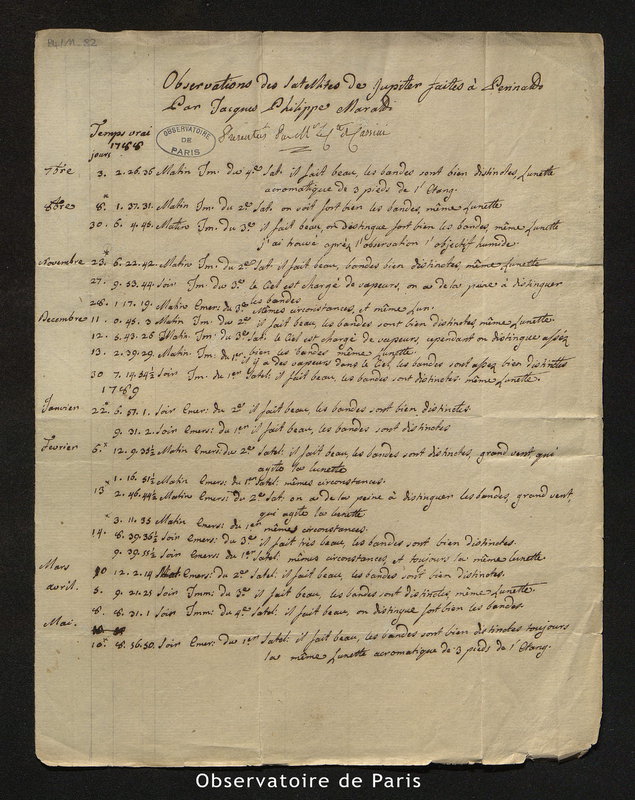 Observations des Satellites de Jupiter faites à Perinaldo
Par Jacques Philippe Maraldi
Temps vrai
1788
jours
OBSERVATOIRE DE PARIS
7bre 3. 2. 26. 35 Matin Im. du 4e Sat. il fait beau, les bandes sont bien distinctes, Lunette
acromatique de 3 pieds de l'Etang.
8bre 8. 1. 37. 31. Matin Im. du 2e Sat. on voit fort bien les bandes, même Lunette
30. 5. 4. 45. Matin Im. du 3e il fait beau, on distingue fort bien les bandes, même Lunette
j'ai trouvé après l'observation l'objectif humide.
Novembre 23. 6. 22. 42. Matin Im. du 2e Sat. il fait beau, bandes bien distinctes, même Lunette
27. 9. 53. 44. Soir Im. du 3e le Ciel est chargé de vapeurs, on a de la peine à distinguer
les bandes
28. 1. 17. 19. Matin Emer: du 3e Mêmes circonstances, et même Lun.
Decembre 11. 0. 45. 3 Matin Im. du 2e il fait beau, les bandes sont bien distinctes, même Lunette.
12. 5. 43. 25 Matin Im. du 3e Sat. le Ciel est chargé de vapeurs, cependant on distingue assez
bien les bandes même Lunette.
13. 2. 39. 29. Matin Im. du 1er il y a des vapeurs dans le Ciel, les bandes sont assez bien distinctes
30 7. 14. 34½ Soir Im. du 1er Satel: il fait beau, les bandes sont distinctes même Lunette.
1789
Janvier 22. 6. 57. 1. Soir Emer: du 2e il fait beau, les bandes sont bien distinctes
9. 31. 2. Soir Emer: du 1er il fait beau, les bandes sont distinctes
Fevrier 6. 12. 9. 35½ Matin Emers: du 2e Satel: il fait beau, les bandes sont distinctes, grand vent qui
agite la lunette
1. 16. 51½ Matin Emers: du 1er Satel: mêmes circonstances.
13 2. 46. 44½ Matin Emers: du 2e Sat: on a de la peine à distinguer les bandes, grand vent,
qui agite la lunette
3. 11. 35 Matin Emers: du 1er mêmes circonstances.
14. 8. 39. 36½ Soir Emers: du 3e il fait très beau, les bandes sont bien distinctes.
9. 39. 55½ Soir Emers: du 1er Satel: mêmes circonstances, et toujours la même lunette
Mars 10 12. 2. 14 Emers: du 2e Satel: il fait beau, les bandes sont bien distinctes.
avril. 5. 9. 21. 25 Soir Imm: du 3e il fait beau, les bandes sont distinctes, même Lunette
8. 8. 31. 1 Soir Imm: du 4e Satel: il fait beau, on distingue fort bien les bandes.
Mai.
10. 8. 36. 30. Soir Emer: du 1er Satel: il fait beau, les bandes sont bien distinctes toujours
la même Lunette acromatique de 3 pieds de l'Etang.
Observatoire de Paris